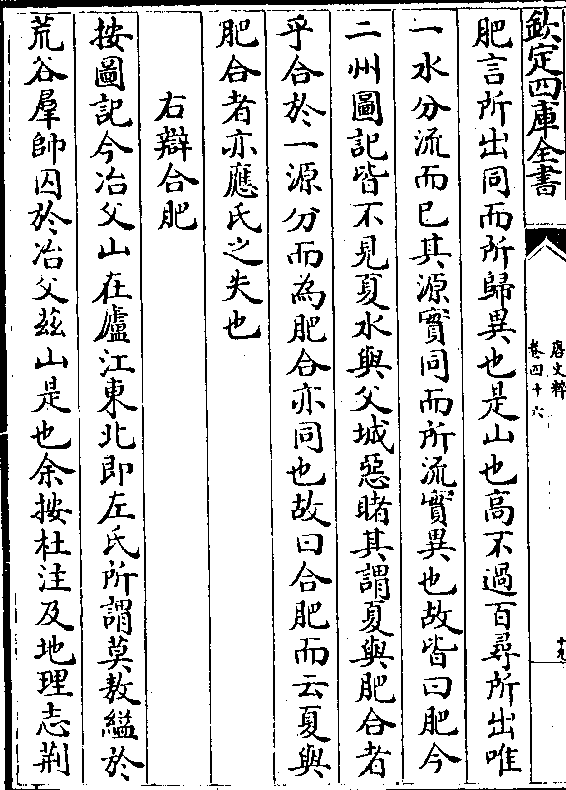 欽定四庫全書
唐文粹
卷四十六
十九
肥言所出同而所歸異也是山也高不過百尋所出唯
一水分流而已其源實同而所流實異也故皆曰肥今
二州圖記皆不見夏水與父城惡睹其謂夏與肥合者
乎合於一源分而為肥合亦同也故曰合肥而云夏與
肥合者亦應氏之失也
右辯合肥
按圖記今冶父山在廬江東北即左氏所謂莫敖縊於
荒谷羣帥囚於冶父茲山是也余按杜注及地理志荆